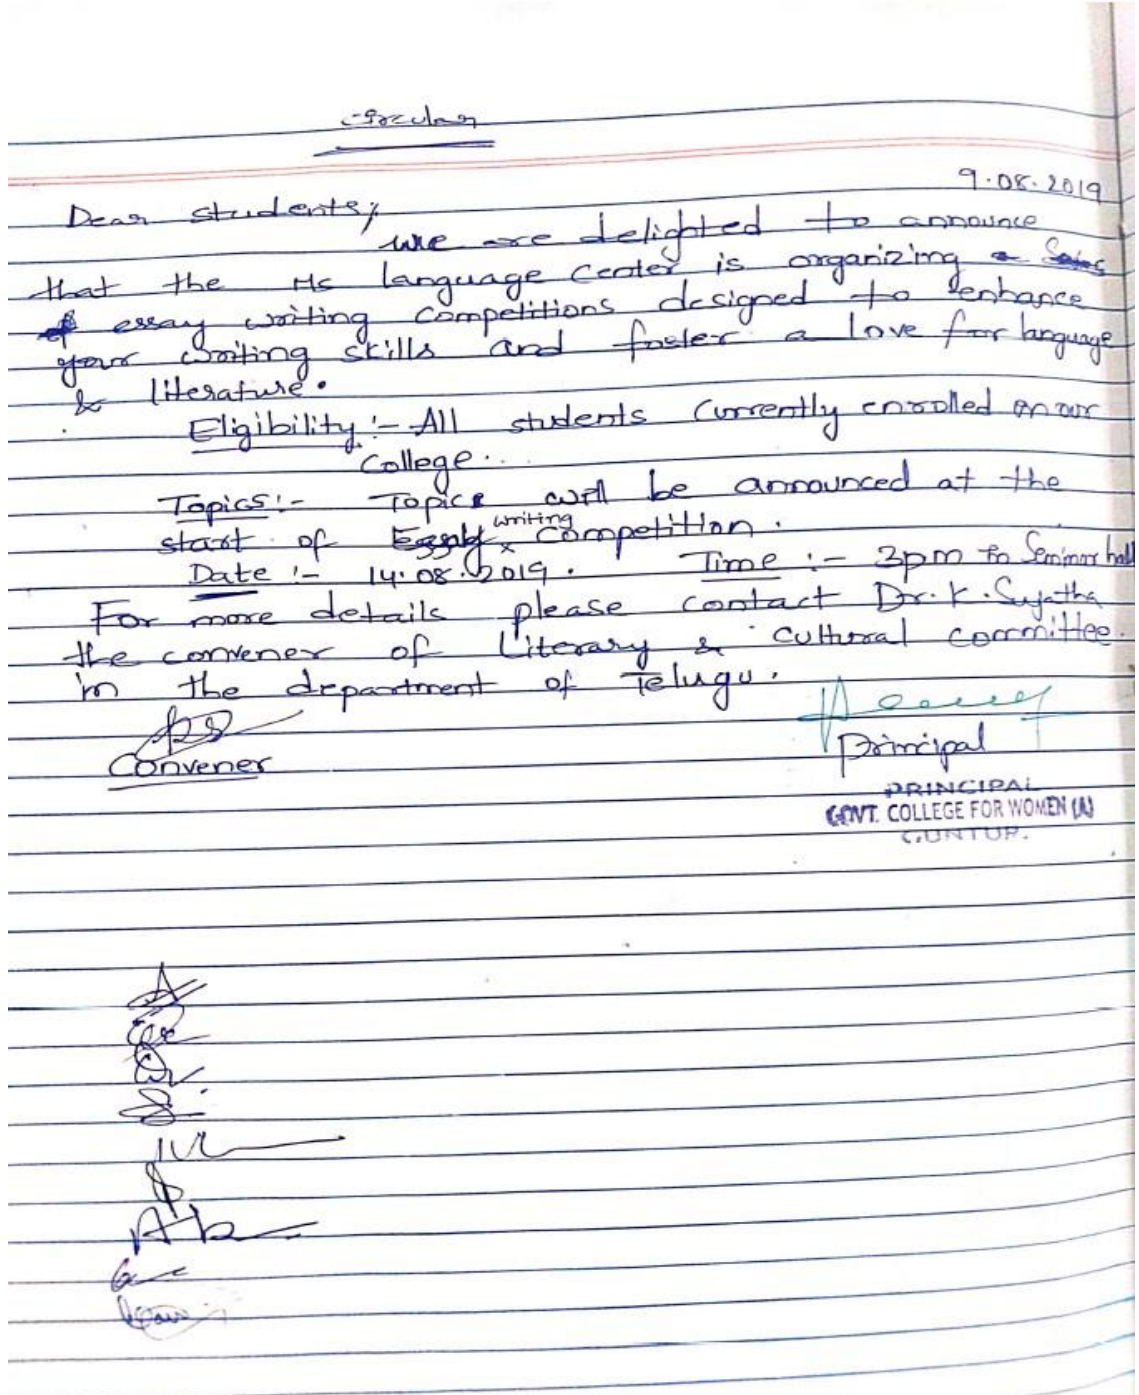 Circular
9.08.2019
Dear students,
We are delighted to announce
that the Hs language Center is organizing
essay writing Competitions designed to enhance
your writing skills and foster a love for language
& literature.
Eligibility :- All students Currently enrolled on our
College..
Topics :- Topics will be announced at the
start of Essay writing Competition.
Date :- 14.08.2019. Time :- 3pm in Seminar hall
For more details please contact Dr. K. Sujatha
the convener of Literary & cultural committee.
in the department of Telugu.
Convener
Principal
PRINCIPAL
GOVT. COLLEGE FOR WOMEN (A)
GUNTUR.